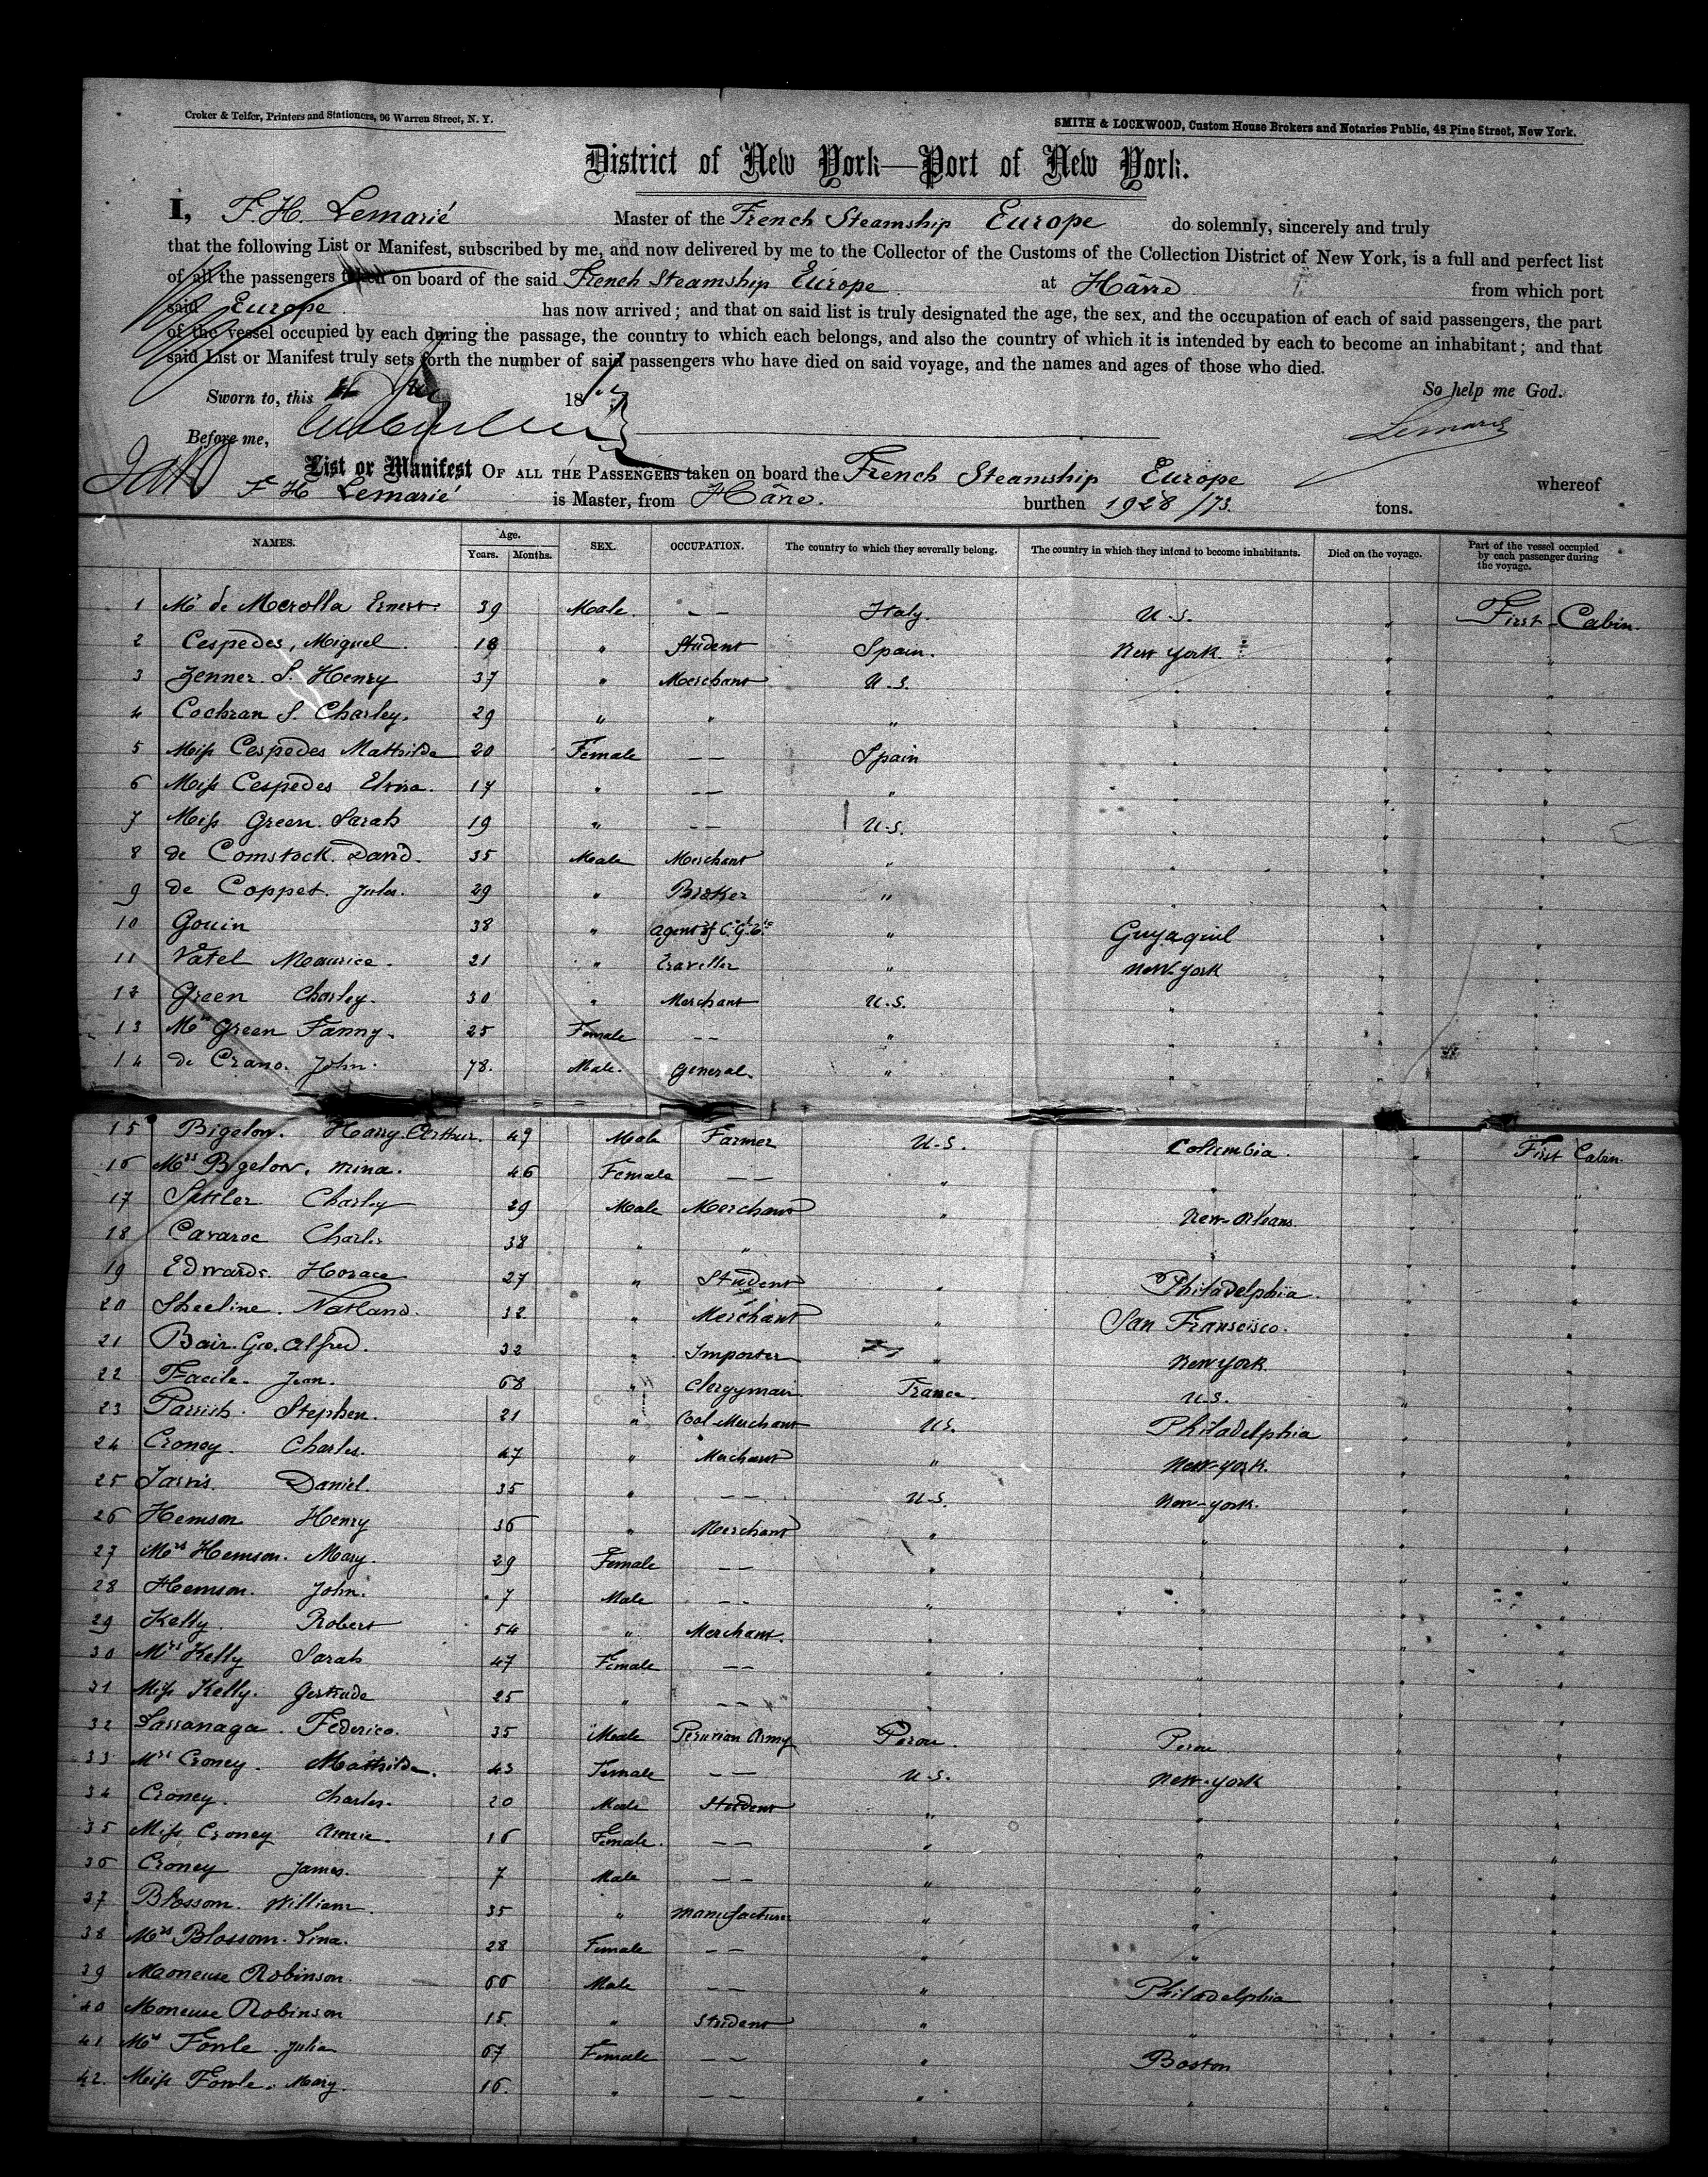 Croker & Telfer, Printers and Stationers, 96 Warren Street, N. Y.
SMITH & LOCKWOOD, Custom House Brokers and Notaries Public, 48 Pine Street, New York.
District of New York—Port of New York.
I, F. H. Lemarié Master of the French Steamship Europe do solemnly, sincerely and truly
that the following List or Manifest, subscribed by me, and now delivered by me to the Collector of the Customs of the Collection District of New York, is a full and perfect list
of all the passengers taken on board of the said French Steamship Europe at Hâvre from which port
said Europe has now arrived; and that on said list is truly designated the age, the sex, and the occupation of each of said passengers, the part
of the vessel occupied by each during the passage, the country to which each belongs, and also the country of which it is intended by each to become an inhabitant; and that
said List or Manifest truly sets forth the number of said passengers who have died on said voyage, and the names and ages of those who died.
Sworn to, this 18 So help me God.
Before me, Lemarié
List or Manifest OF ALL THE PASSENGERS taken on board the French Steamship Europe whereof
F H Lemarié is Master, from Hâvre. burthen 1928/73. tons.
NAMES. Age. Years. Months. SEX. OCCUPATION. The country to which they severally belong. The country in which they intend to become inhabitants. Died on the voyage. Part of the vessel occupied by each passenger during the voyage.
1 Mr de Merolla Ernest. 39 Male. — — Italy. U.S. " First Cabin.
2 Cespedes, Miguel. 18 " Student Spain. New York. " "
3 Zenner S. Henry 37 " Merchant U.S. " " "
4 Cochran S. Charley. 29 " " " " " "
5 Miss Cespedes Mathilde 20 Female — — Spain " " "
6 Miss Cespedes Elvira. 17 " — — " " " "
7 Miss Green. Sarah 19 " — — U.S. " " "
8 de Comstock. David. 35 Male Merchant " " " "
9 de Coppet. Jules. 29 " Broker " " " "
10 Gouin 38 " Agent of " Guyaquil " "
11 Vatel Maurice. 21 " traveller " New-York " "
12 Green Charley. 30 " Merchant U.S. " " "
13 Mrs Green Fanny. 25 Female — — " " " "
14 de Crano. John. 78. Male. General. " " " "
15 Bigelow. Harry Arthur. 49 Male Farmer U-S. Columbia. " First Cabin
16 Mrs Bigelow, Mina. 46 Female — — " " " "
17 Sattler Charley 29 Male Merchant " New-Orleans. " "
18 Cavaroc Charles 38 " " " " "
19 Edwards. Horace 27 " Student " Philadelphia. " "
20 Sheeline. Nathand. 32 " Merchant " San Franscisco. " "
21 Bair. Geo. Alfred. 32 " Importer " New York. " "
22 Facile. Jean. 68 " Clergyman France. U.S. " "
23 Parrish. Stephen. 21 " Coal Merchant U.S. Philadelphia " "
24 Croney. Charles. 47 " Merchant " New-York. " "
25 Jarvis. Daniel. 35 " — — U.S. New-York. " "
26 Hemson Henry 36 " Merchant " " " "
27 Mrs Hemson. Mary. 29 Female — — " " " "
28 Hemson. John. 7 Male — — " " " "
29 Kelly. Robert 54 " Merchant. " " " "
30 Mrs Kelly Sarah 47 Female — — " " " "
31 Miss Kelly. Gertrude 25 " — — " " " "
32 Lassanaga. Federico. 35 Male Peruvian Army Perou. Perou. " "
33 Mrs Croney. Mathilde. 43 Female — — U.S. New-York " "
34 Croney. Charles. 20 Male Student " " " "
35 Miss Croney Annie. 16 Female. — — " " " "
36 Croney James. 7 Male — — " " " "
37 Blossom. William. 35 " Manufacturer " " " "
38 Mrs Blossom. Lina. 28 Female — — " " " "
39 Moneuse Robinson. 66 Male — — " Philadelphia " "
40 Moneuse Robinson 15. " Student " " " "
41 Mrs Fowle. Julia 67 Female — — " Boston " "
42. Miss Fowle. Mary. 16. " — — " " " "